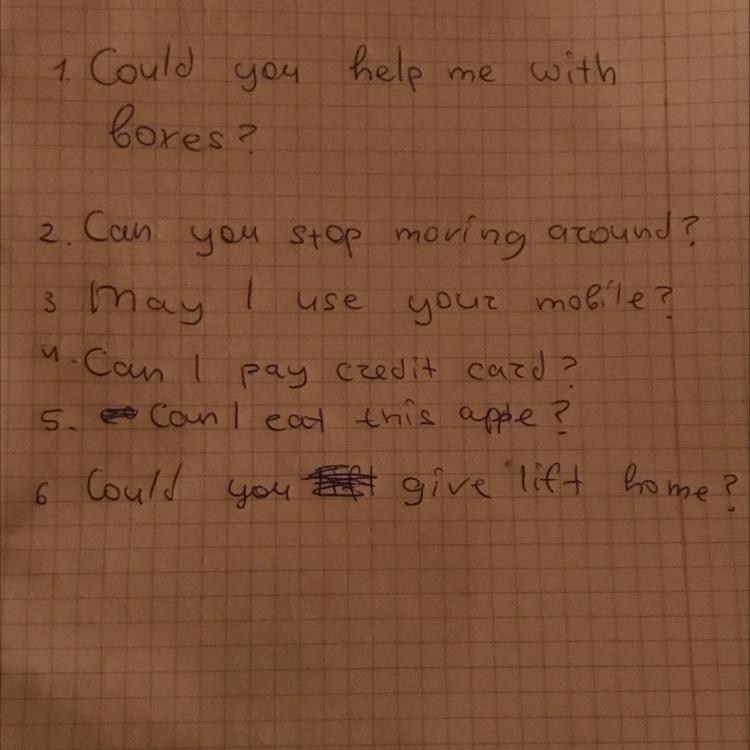 1. Could you help me with
boxes?
2. Can you stop moving around?
3 May I use your mobile?
4. Can I pay credit card?
5. Can I eat this appe?
6 Could you give lift home?